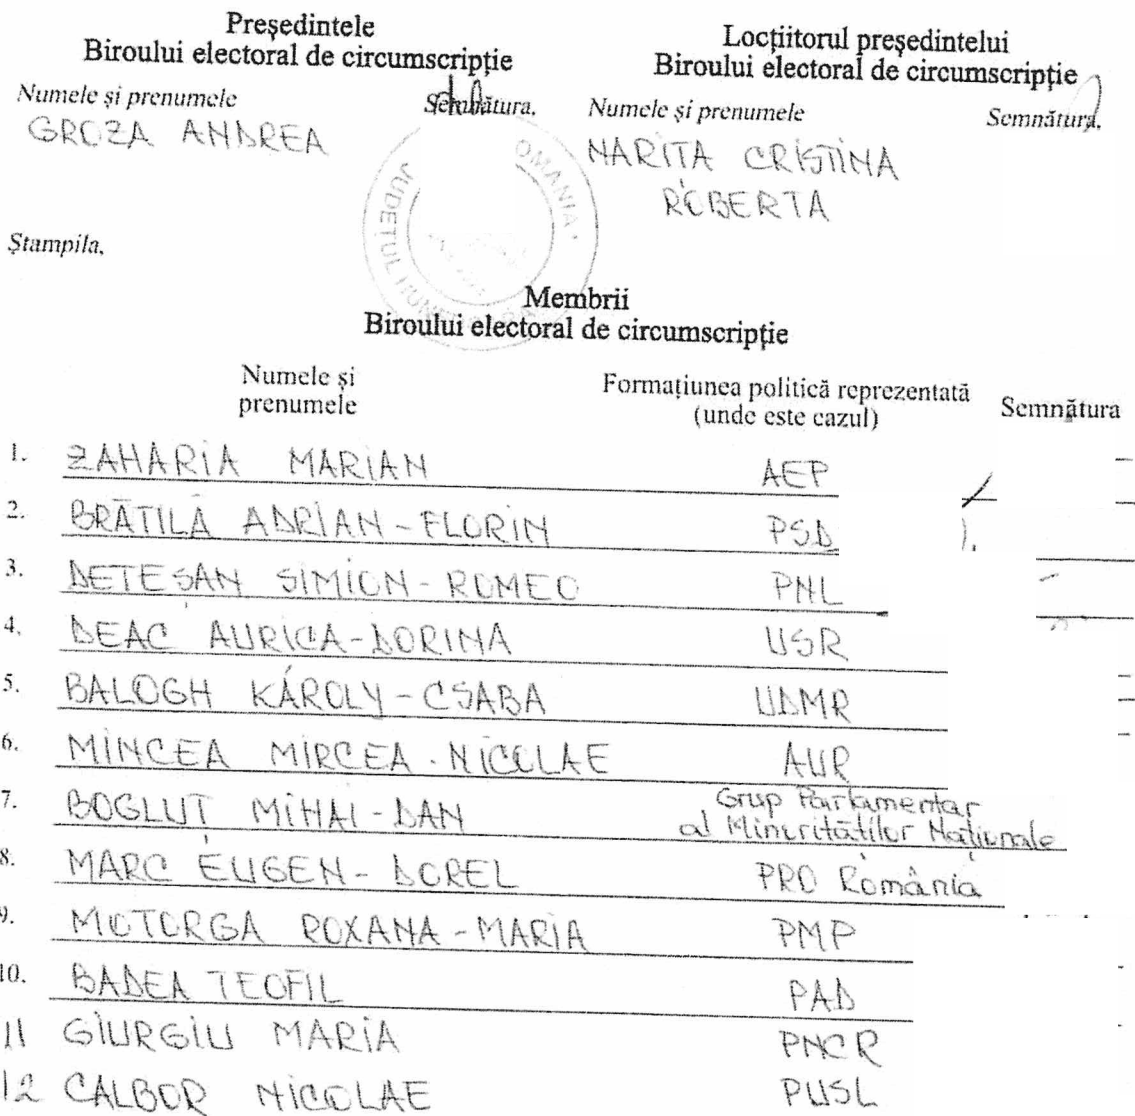 Președintele
Biroului electoral de circumscripție
Numele și prenumele Semnătura,
GROZA ANDREA
Locțiitorul președintelui
Biroului electoral de circumscripție
Numele și prenumele Semnătura,
NARITA CRISTINA
ROBERTA
ROMANIA
JUDEȚUL HUNEDOARA
Ștampila,
Membrii
Biroului electoral de circumscripție
Numele și prenumele Formațiunea politică reprezentată (unde este cazul) Semnătura
1. ZAHARIA MARIAN AEP
2. BRĂTILĂ ADRIAN-FLORIN PSD
3. DETESAN SIMION-ROMEO PNL
4. DEAC AURICA-DORINA USR
5. BALOGH KÁROLY-CSABA UDMR
6. MINCEA MIRCEA-NICOLAE AUR
7. BOGLUȚ MIHAI-DAN Grup Parlamentar al Minorităților Naționale
8. MARC EUGEN-DOREL PRO România
9. MOTORGA ROXANA-MARIA PMP
10. BADEA TEOFIL PAD
11 GIURGIU MARIA PNCR
12 CALBOR NICOLAE PUSL